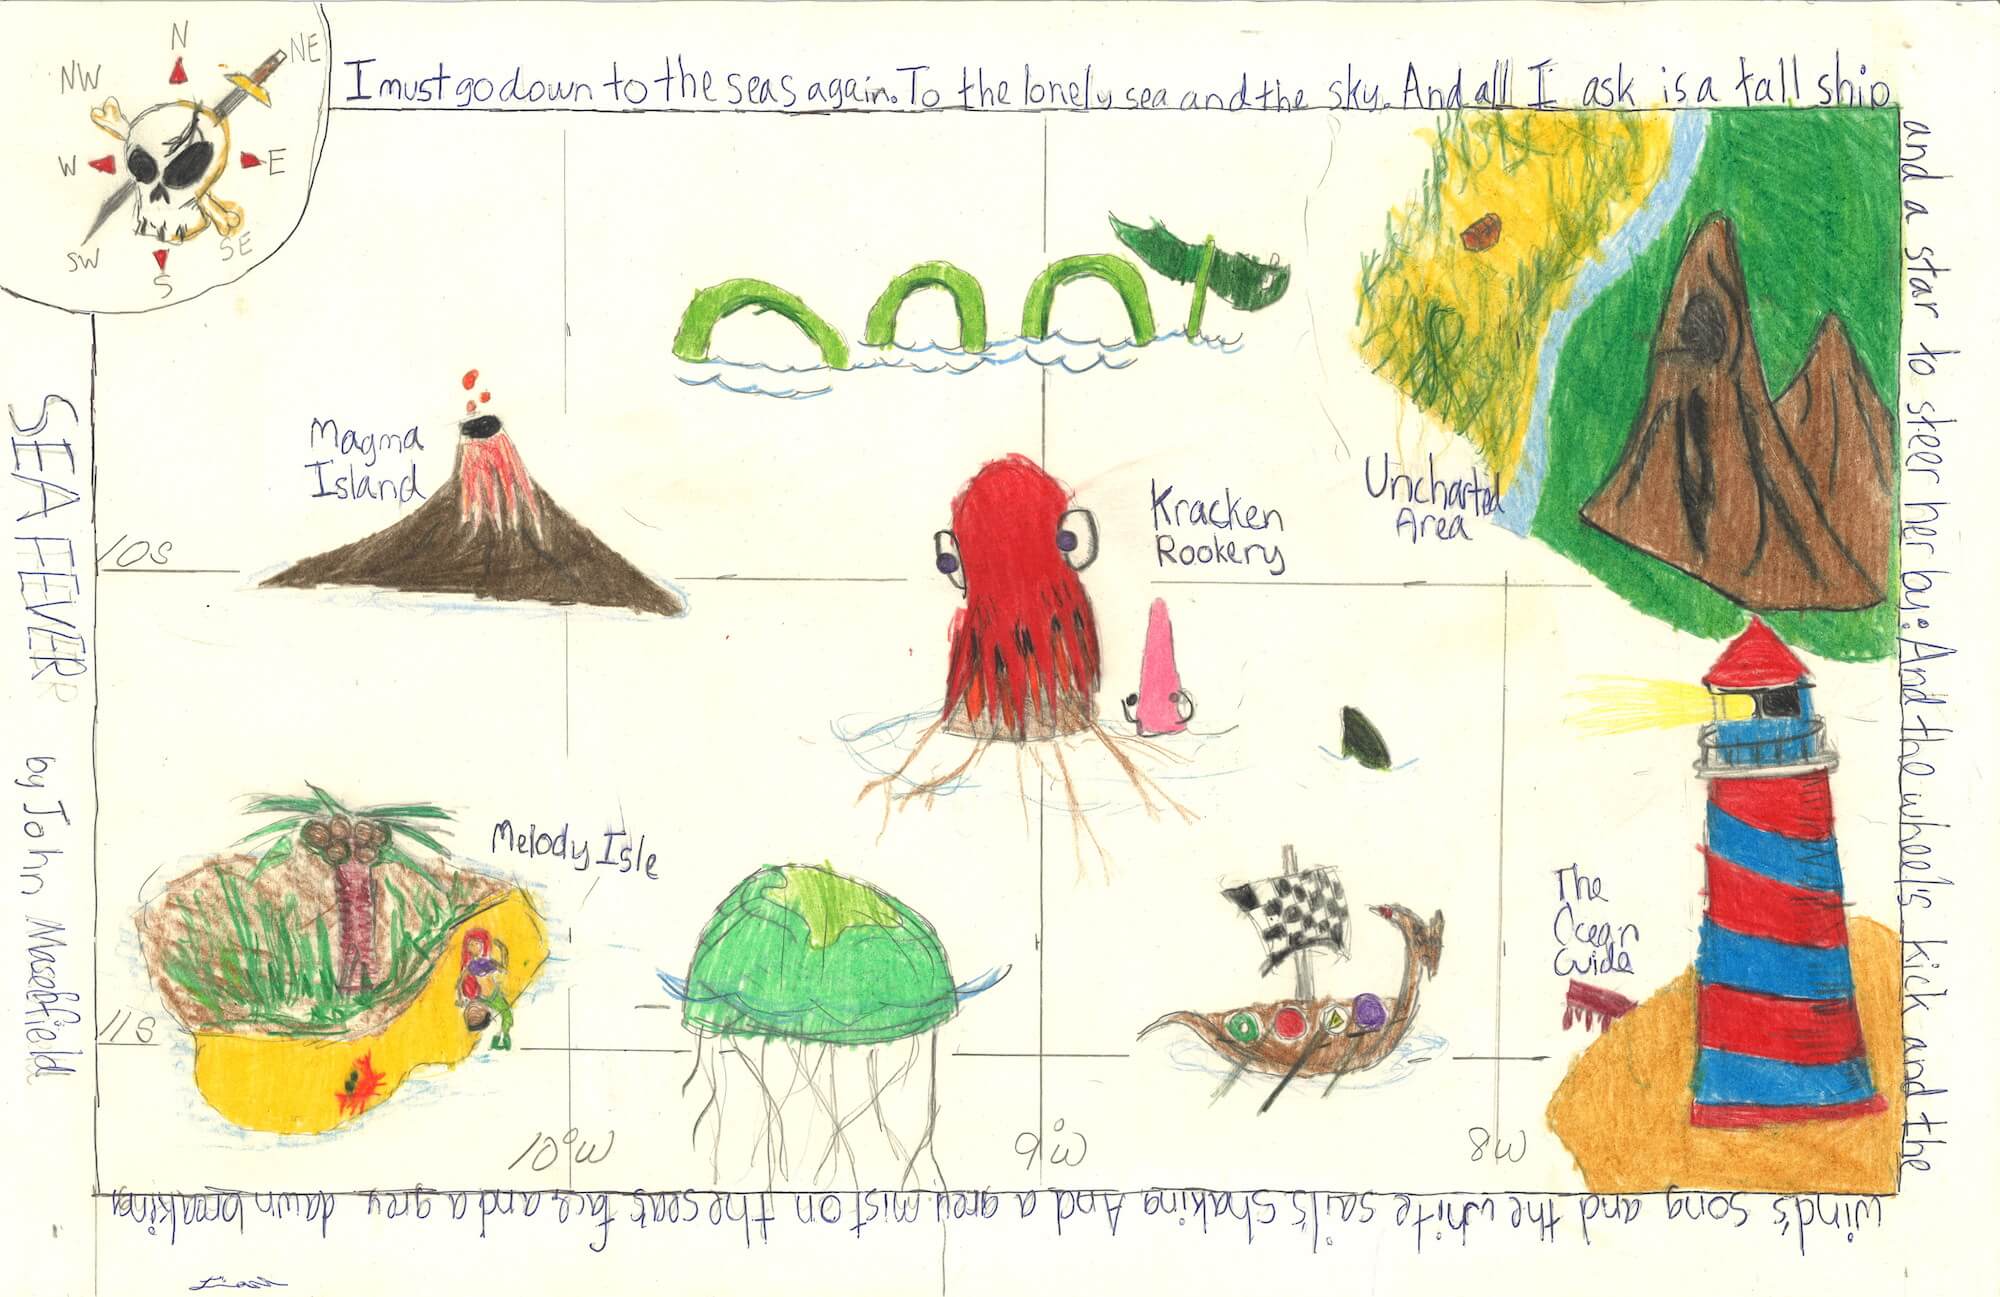 N
NE
NW
W
E
SW
S
SE
I must go down to the seas again. To the lonely sea and the sky. And all I ask is a tall ship
and a star to steer her by: And the wheel's kick and the
wind's song and the white sail's shaking And a grey mist on the seas face and a grey dawn breaking
SEA FEVER
by John Masefield
Magma
Island
Kracken
Rookery
Uncharted
Area
10S
Melody Isle
The
Ocean
Guide
11S
10°W
9°W
8W